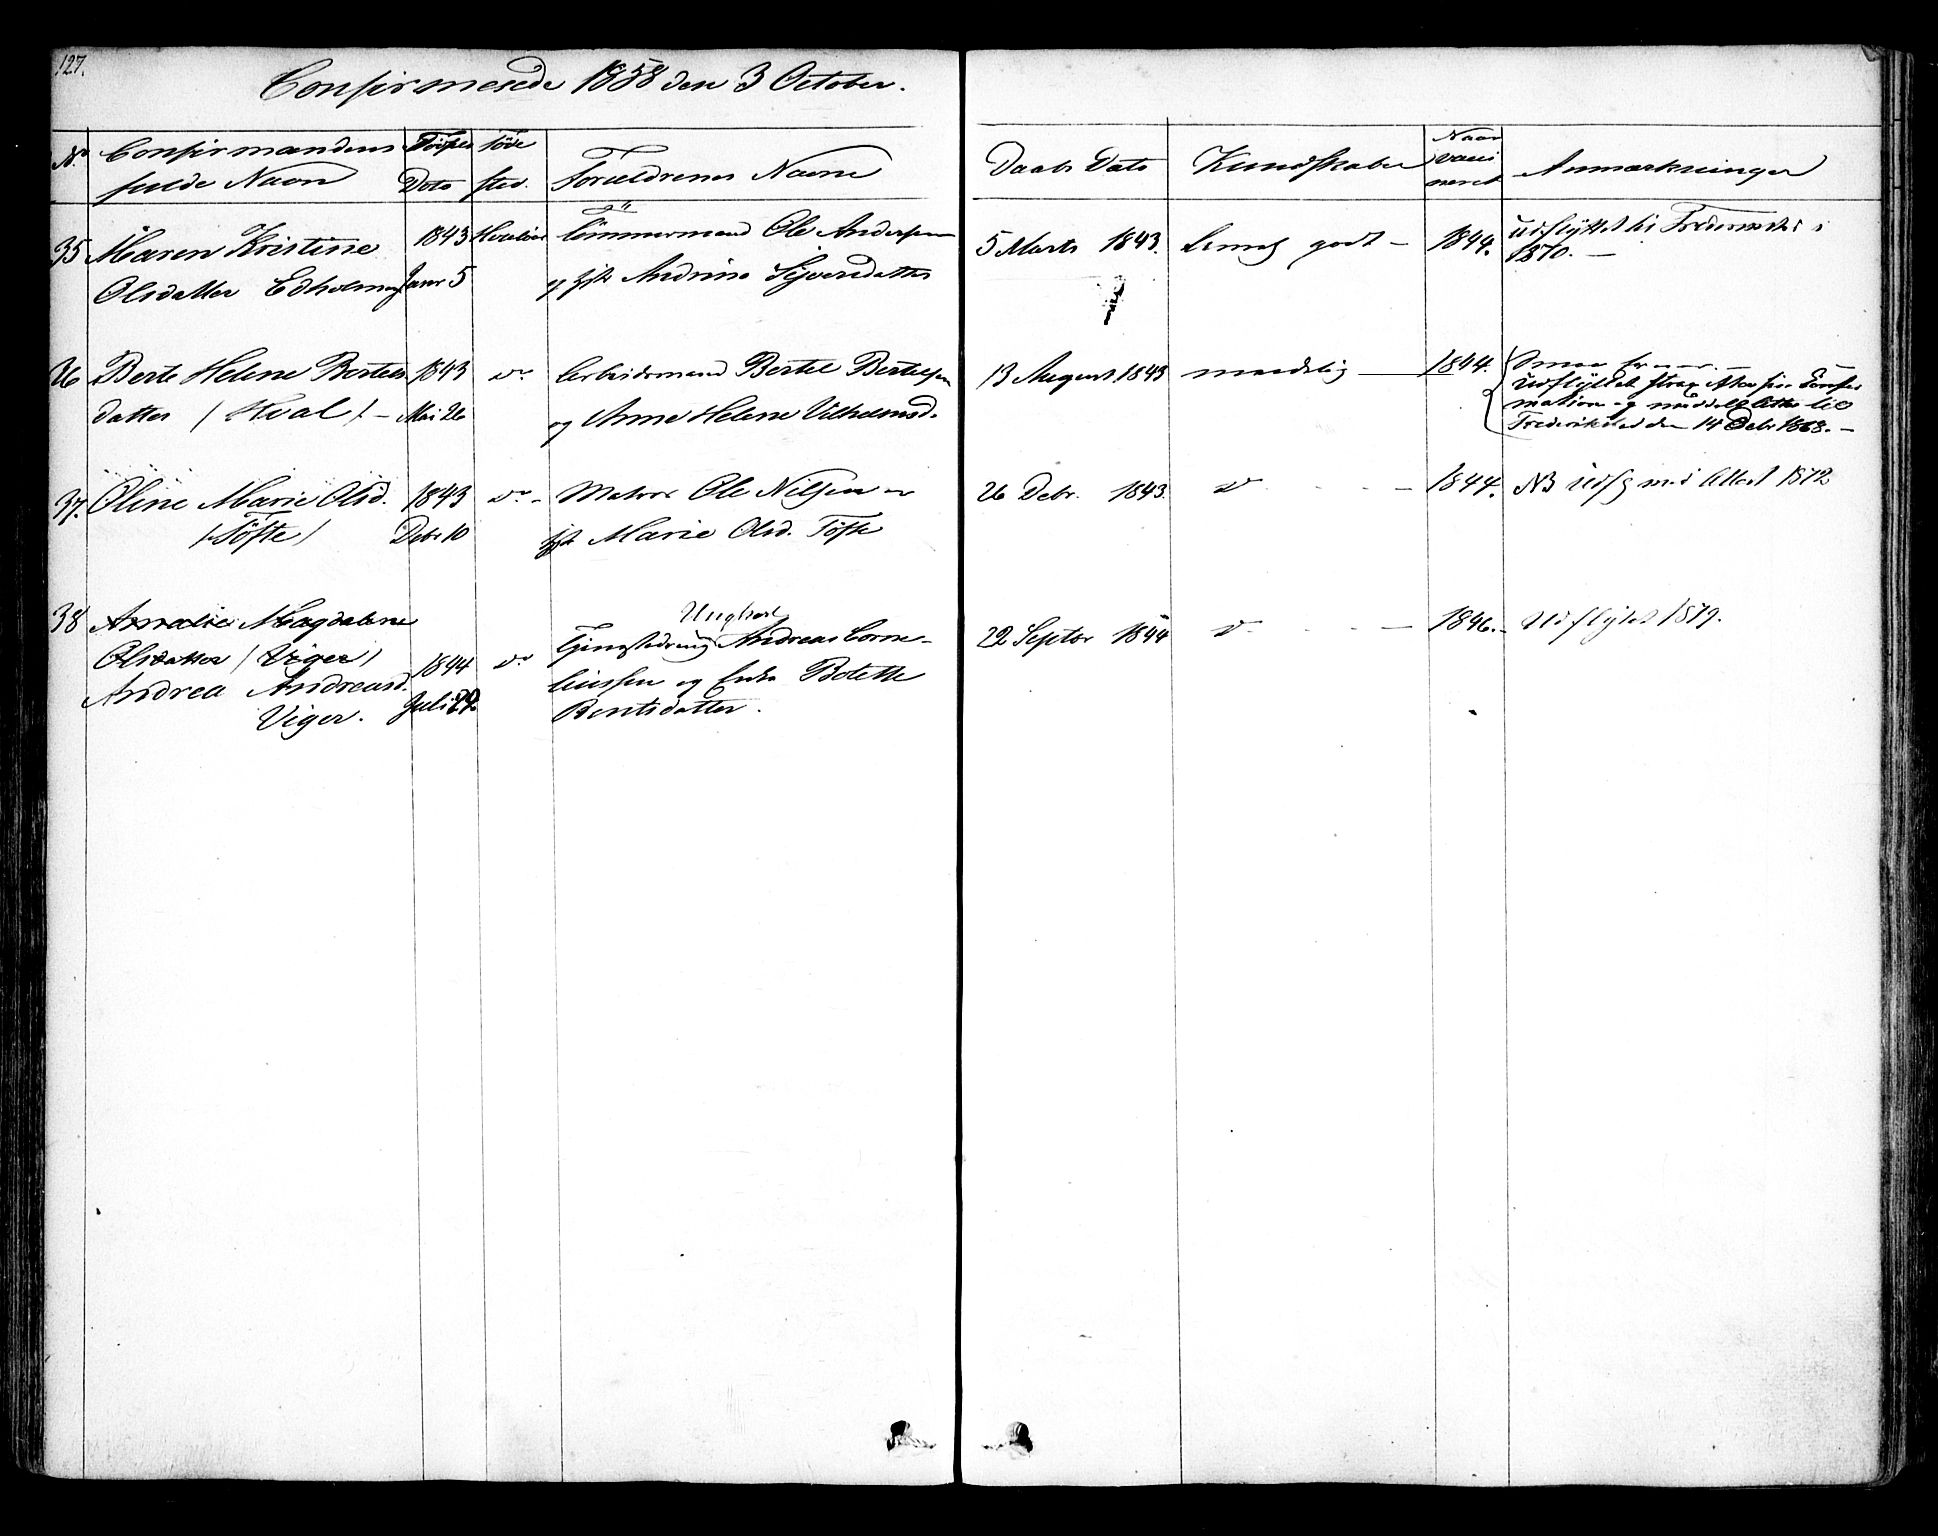 127.
Confirmerede 1858 den 3 October.
No Confirmandens fulde Navn
Fødsels Dato
Føde sted.
Forældrenes Navne
Daabs Dato
Kundskaber
Naar vacci neret
Anmærkninger
35 Maren Kristine
Olsdatter Edholmen
1843
Janr 5
Hvaløer
Tømmermand Ole Andersen
og Andrine Syversdatter
5 Marts 1843.
temg godt -
1844.
udflyttet til i
1870. -
36 Berte Helene Bertels
datter / Kval / -
1843
Mai 26
do
Arbeidsmand Bertel Bertelsen
og Anne Helene Vilhelmsd.
13 August 1843
maadelig
1844.
Udflyttet strax efter sin Confir
mation og meddelt Attest til
Frederikstad den 14 Debr 1868. -
37. Oline Marie Olsd.
/ Tøfte /
1843
Debr 10
do -
Matros Ole Nilsen -
Marie Olsd. Tøfte
26 Debr. 1843.
do - - -
1844.
NB Udfl med Attest 1872
38 Amalie Magdalene
Olsdatter / Viger /
Andrea Andreasd.
Viger.
1844
Juli 29
do
Ungkarl
Tjenestedreng Andreas Corne-
liussen og Enke Bolette
Berntsdatter.
22 Septbr 1844
do - - -
1846.
Udflyttet 1879.